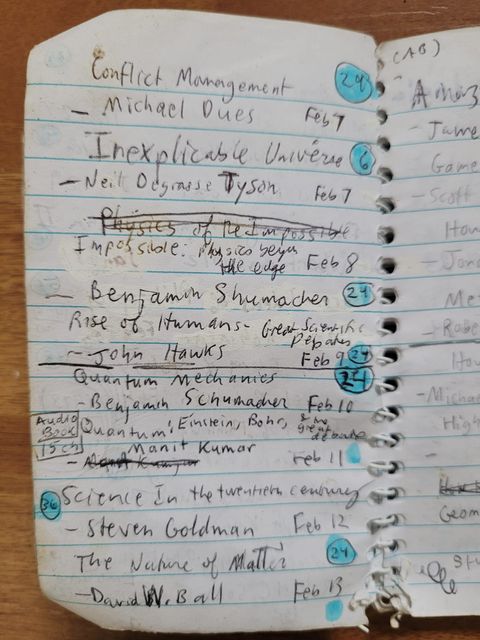 Conflict Management 24
- Michael Dues Feb 7
Inexplicable Universe 6
- Neil Degrasse Tyson Feb 7
Physics of the Impossible
Impossible: Physics beyon
the edge Feb 8
- Benjamin Shumacher 24
Rise of Humans - Great Scientific
Debates
- John Hawks Feb 9 24
Quantum Mechanics 24
- Benjamin Schumacher Feb 10
Audio
Book Quantum: Einstein, Bohr, & the
great
debate
15ch Manit Kumar
- Feb 11
36 Science In the twentieth century
- Steven Goldman Feb 12
The Nature of Matter 24
- David W. Ball Feb 13
(AB)
Jame
Game
- Scott
How
Me
- Robe
How
- Michae
High
Geom